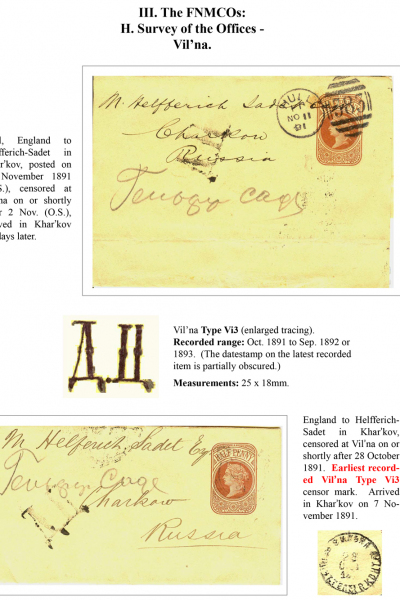 III. The FNMCOs:
H. Survey of the Offices -
Vil’na.
M. Helfferich Sadet
Charkow
Russia
HULL
NO 11
91
383
, England to
fferich-Sadet in
r’kov, posted on
November 1891
S.), censored at
na on or shortly
r 2 Nov. (O.S.),
ved in Khar’kov
days later.
Д.Ц
Vil’na Type Vi3 (enlarged tracing).
Recorded range: Oct. 1891 to Sep. 1892 or
1893. (The datestamp on the latest recorded
item is partially obscured.)
Measurements: 25 x 18mm.
M. Helferich Sadet Esq
Charkow
Russia
HALFPENNY
England to Helfferich-
Sadet in Khar’kov,
censored at Vil’na on or
shortly after 28 October
1891. Earliest record-
ed Vil’na Type Vi3
censor mark. Arrived
in Khar’kov on 7 No-
vember 1891.